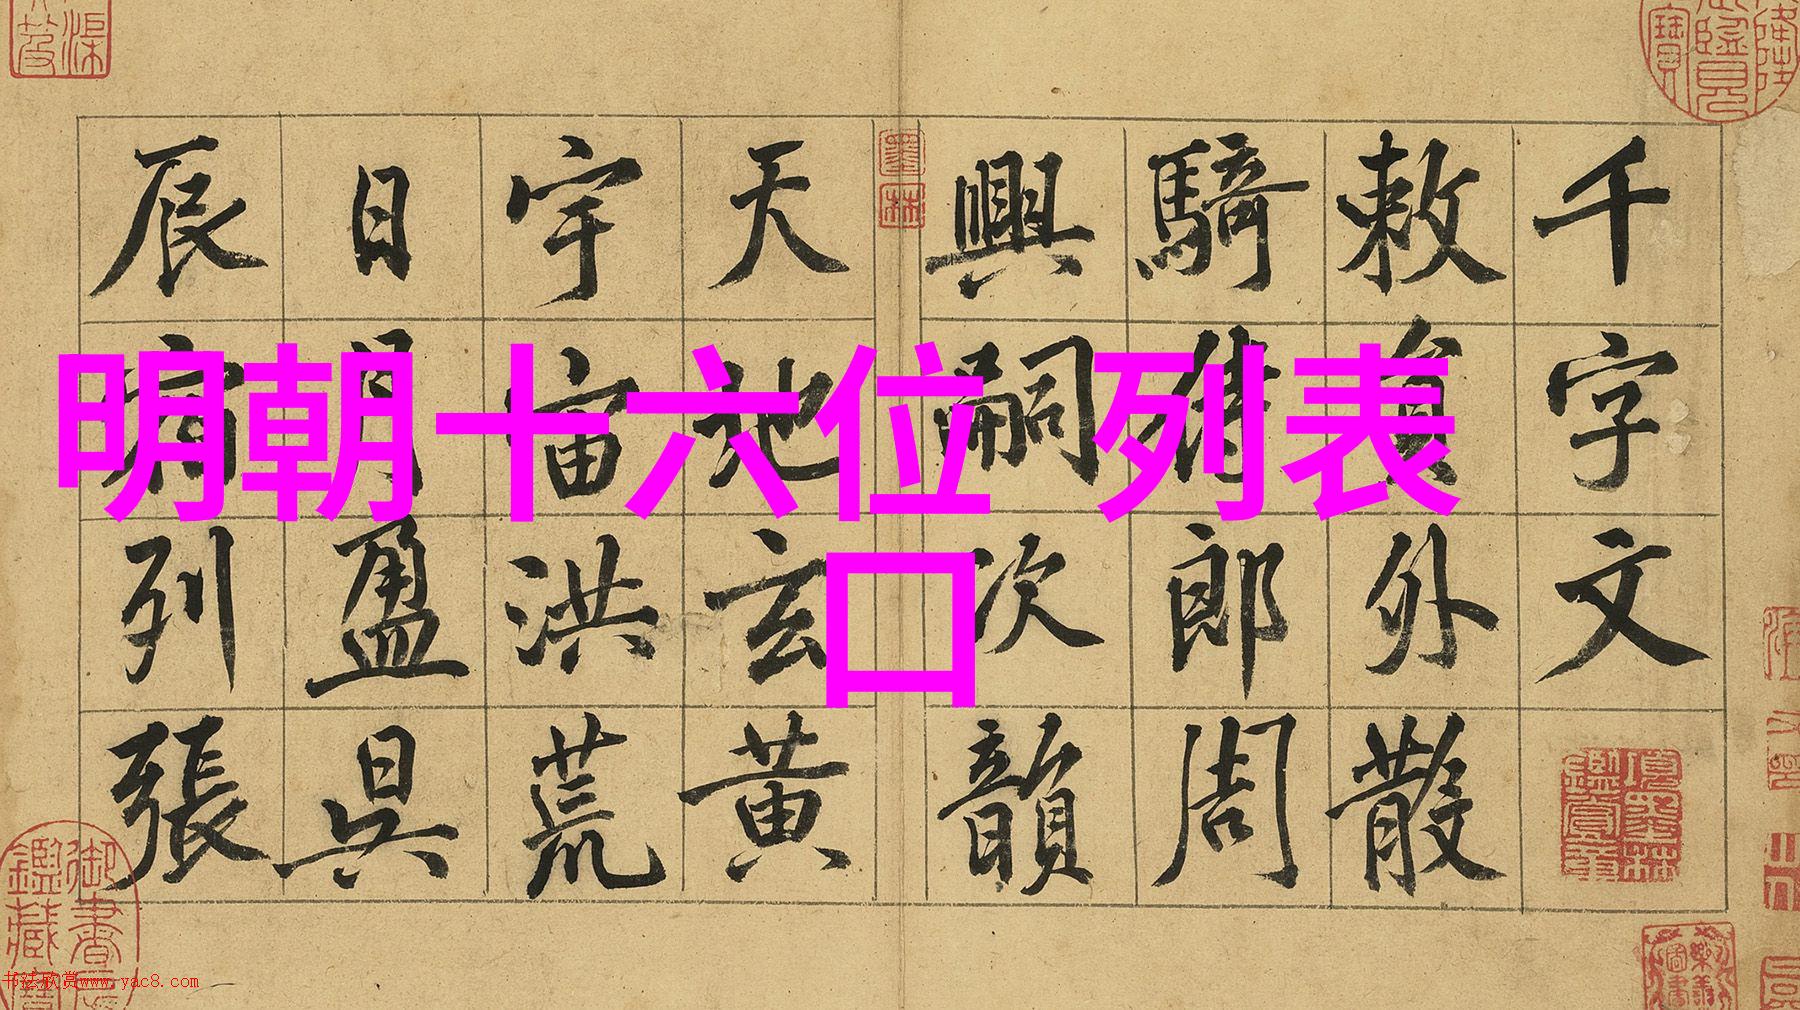 明朝十六位 列表
口
千字文
敕員外散
騎侍郎周
興嗣次韻
天地玄黃
宇宙洪荒
日月盈昃
辰宿列張
書法欣赏www.yac8.com